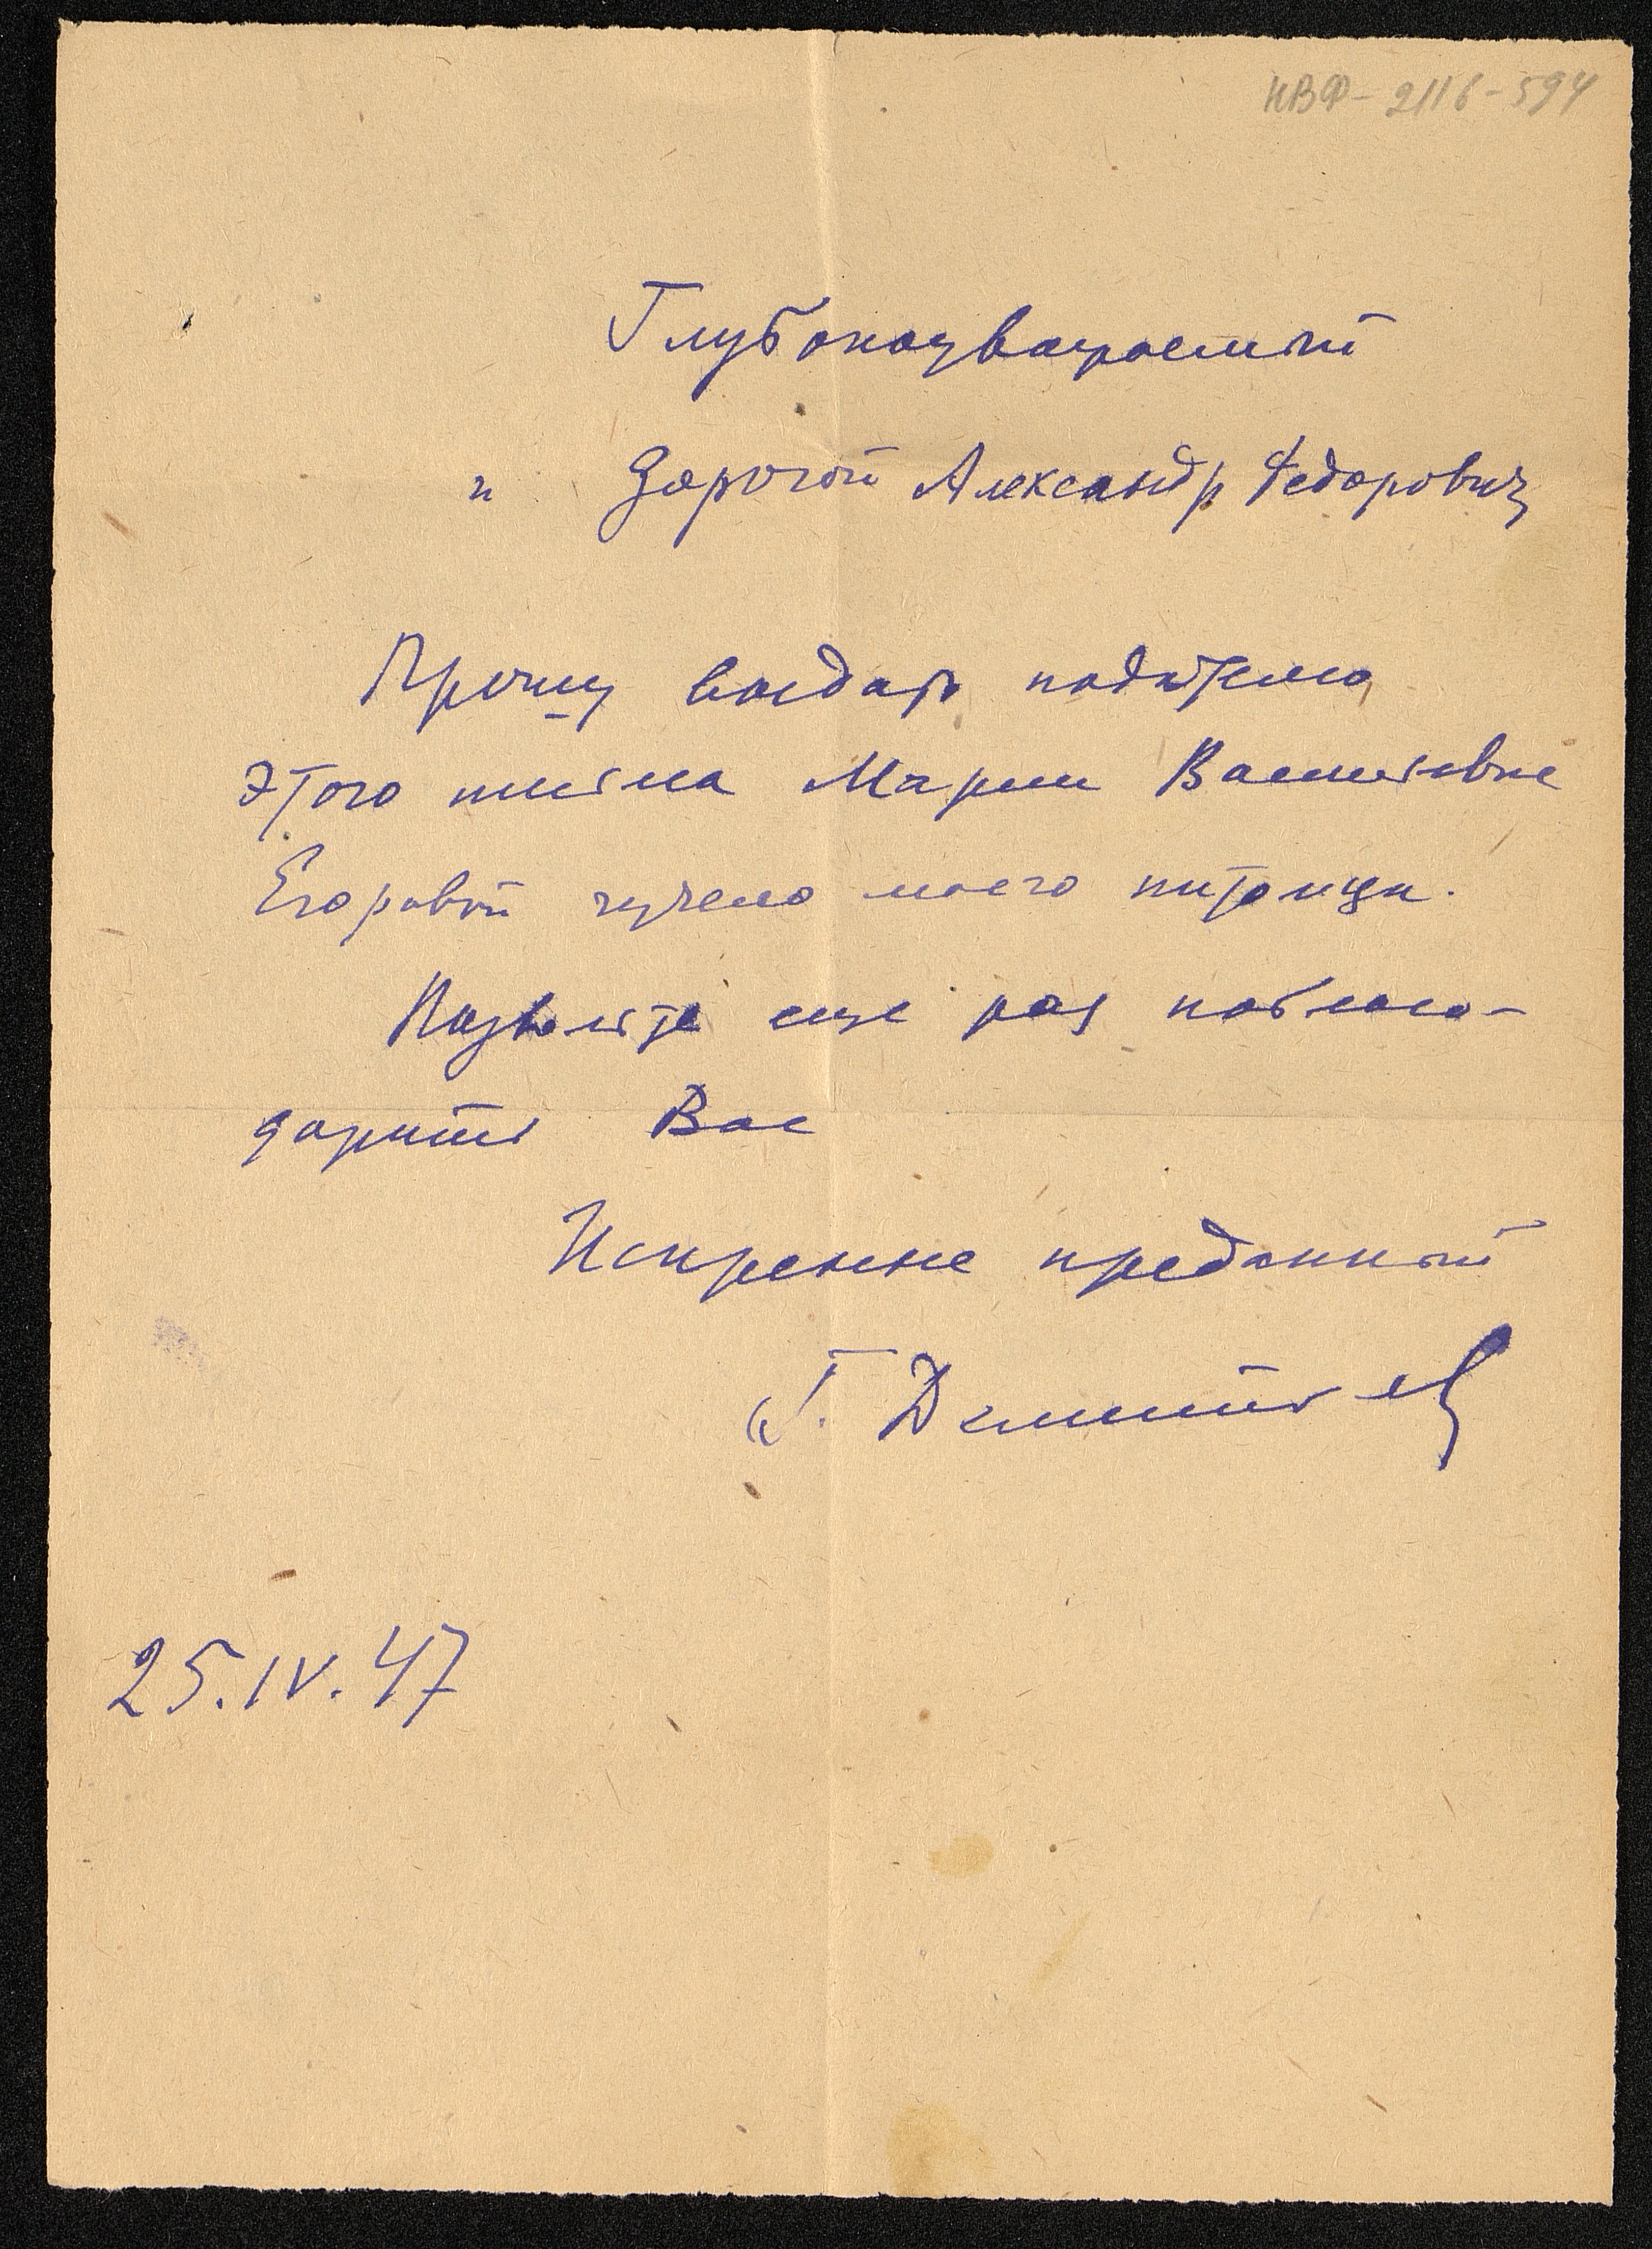 НВФ-2116-594
Глубокоуважаемый
и дорогой Александр Федорович
Прошу выдать подателю
этого письма Марии Васильевне
Егоровой чучело моего питомца.
Позвольте еще раз поблаго-
дарить Вас
Искренне преданный
Г. Дементьев
25.IV.47